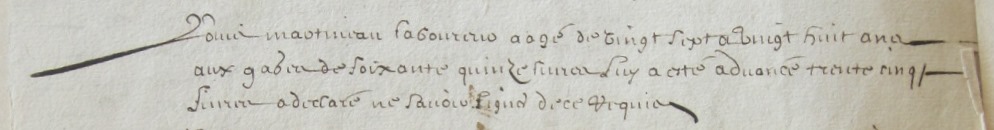 Louis martineau laboureur aagé de vingt sept a vingt huit ans
aux gages de soixante quinze livres luy a esté advancé trente cinq
livres a declaré ne savoir signer de ce requis